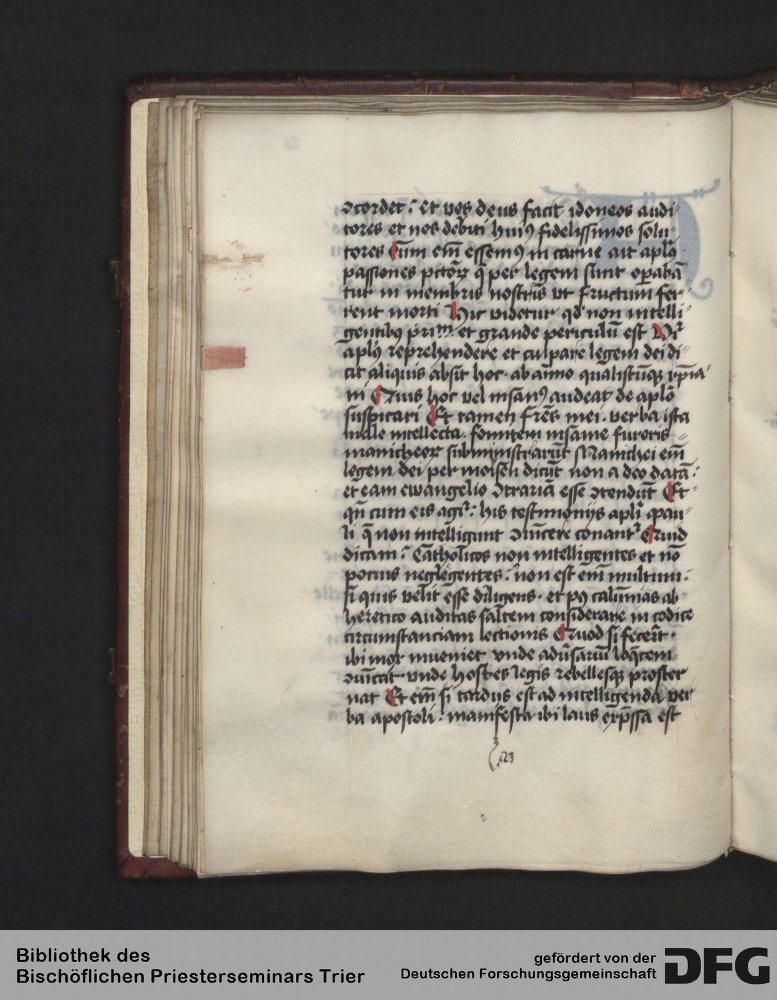 ↄcordet : et vos deus facit idoneos audi
tores et nos debiti huiꝰ fidelissimos solu
tores Cum em̄ essemꝰ in carne ait apl̄s
passiones pctōꝝ q̄ per legem sunt oꝑabā
tur in membris nostris vt fructum fer
rent morti Hic videtur qd non intelli
gentibꝰ prim̄ et grande periculū est Nͥ
apl̄s reprehendere et culpare legem dei di
cit aliquis absit hoc · ab aīmo qualiscūqꝫ xp̄ia
ni Quis hoc vel insanꝰ audeat de apl̄o
suspicari Et tamen fr̄es mei · verba ista
male intellecta · fomitem insanie furoris
manicheoꝝ subministrarūt Manichei em̄
legem dei per moisen dicūt non a deo datā :
et eam ewangelio ↄtrariā esse ↄtendūt Et
qn̄ cum eis agiꝰ : his testimonijs apli pau
li q̄ non intelligunt ↄuincere conantꝰ Quid
dicam : Catholicos non intelligentes et nō
pocius neglegentes : non est em̄ multum :
si quis velit esse diligens · et pꝰ calūmas ab
heretico auditas saltem considerare in codice
circumstanciam lectionis Quod si fecerīt ·
ibi mox inueniet vnde aduersariū loq̄tem
ↄuīcat vnde hostes legis rebellesqꝫ proster
nat Et em̄ si tardus est ad intelligenda ver
ba apostoli · manifesta ibi laus exp̄ssa est
123
Bibliothek des
Bischöflichen Priesterseminars Trier
gefördert von der
Deutschen Forschungsgemeinschaft
DFG